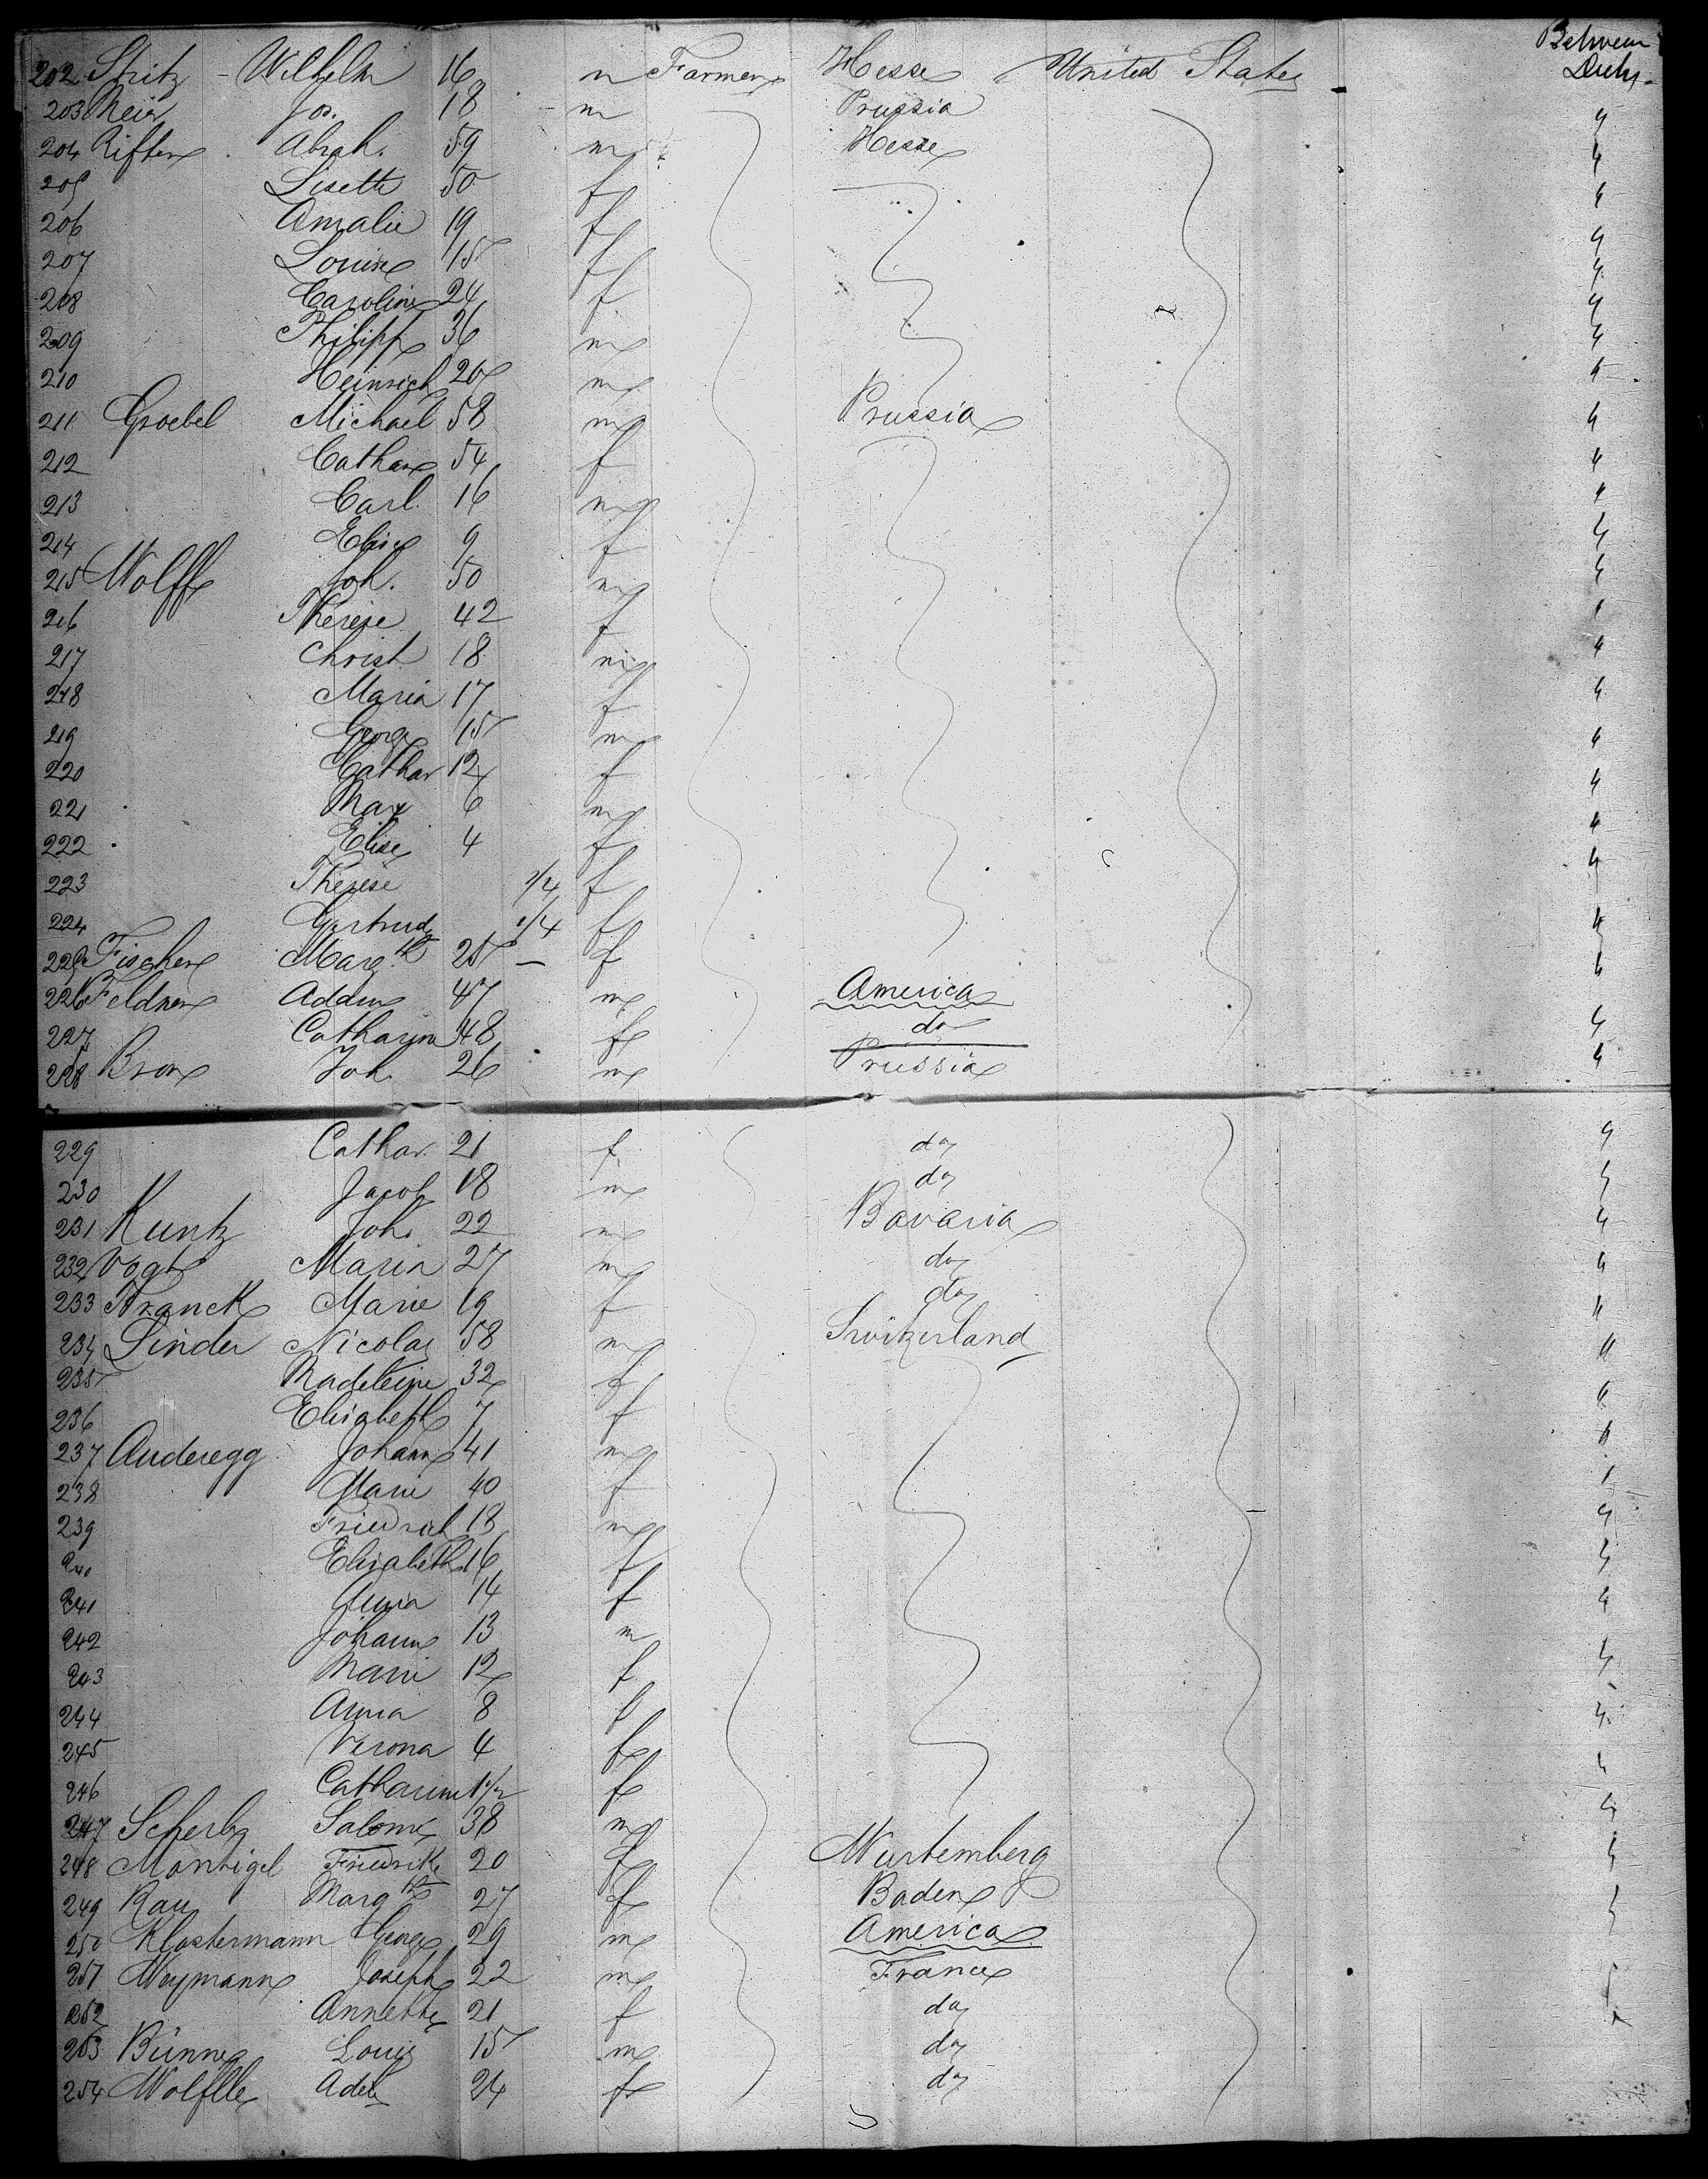 Between Decks
202 Stritz - Wilhelm 16 m Farmer Hesse United States
203 Meier Jos. 18 m Prussia "
204 Rifter Abrah. 59 m Hesse "
205 Lisette 50 f "
206 Amalie 19 f "
207 Louise 15 f "
208 Caroline 24 f "
209 Philipp 36 m "
210 Heinrich 20 m "
211 Groebel Michael 58 m Prussia "
212 Cathar 54 f "
213 Carl. 16 m "
214 Elise 9 f "
215 Wolff Joh. 50 m "
216 Therese 42 f "
217 Christ 18 m "
218 Maria 17 f "
219 George 15 m "
220 Cathar 12 f "
221 Max 6 m "
222 Elise 4 f "
223 Therese 1/4 f "
224 Gertrud 1/4 f "
225 Fischer Marg.th 25 - f "
226 Feldner Adam 47 m America "
227 Catharin 48 f do "
228 Bron Joh. 26 m Prussia "
229 Cathar. 21 f do "
230 Jacob 18 m do "
231 Kuntz Joh. 22 m Bavaria "
232 Vogt Maria 27 m do "
233 Franck Marie 19 f do "
234 Linder Nicolas 58 m Switzerland "
235 Madeleine 32 f "
236 Elisabeth 7 f "
237 Anderegg Johann 41 m "
238 Marie 40 f "
239 Friedrich 18 m "
240 Elisabeth 16 f "
241 Anna 14 f "
242 Johann 13 m "
243 Marie 12 f "
244 Anna 8 f "
245 Verona 4 f "
246 Catharine 1 1/2 f "
247 Scherb Salome 38 m "
248 Montigel Friedrike 20 f Wurtemberg "
249 Rau Margth 27 f Baden "
250 Klostermann George 29 m America
251 Weymann Joseph 22 m France "
252 Annette 21 f do "
253 Bünne Louis 15 m do
254 Wolflle Adele 24 f do